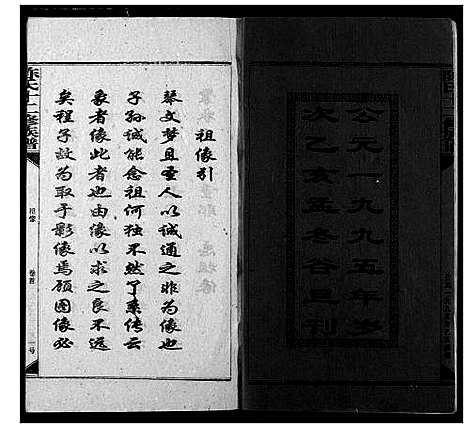 公元一九九五年岁
次乙亥孟冬谷旦刊
祖像引
琴文梦旦圣人以诚通之非为像也
子孙诚能念祖何独不然了系传云
象者像此者也由像以求之良不远
矣程子故为取于影像焉顾图像必
氏十二修族谱
祖像
卷首